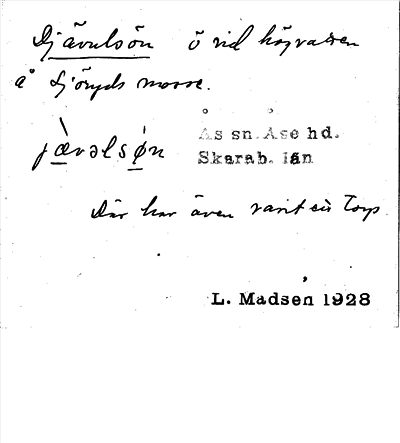 Djävulsön ö vid högvatten
å Sjöryds mosse.
jæ̀vəlsǿn
Ås sn. Åse hd.
Skarab. län
Där har även varit ett torp
L. Madsen 1928